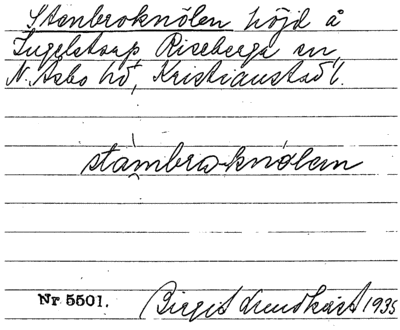 Stenbroknölen höjd å
Ingelstorp Riseberga sn,
N. Åsbo hd, Kristianstad l.
stambro-knölen
Nr 5501. Birgit Lundkvist 1935